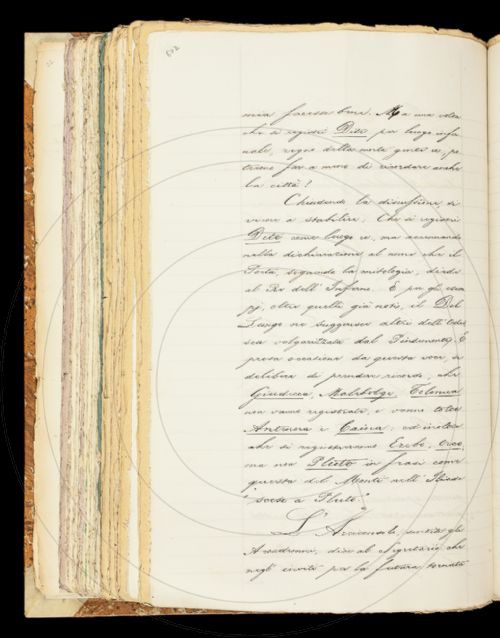 mia faccia bene. Ma una volta
che si registri Dite per luogo infer
nale, regno della morta gente ec. po
tremo far a meno di ricordare anche
la città?
Chiudendo la discussione si
viene a stabilire, Che si registri
Dite come luogo ec. ma accennando
nella dichiarazione al nome che il
Poeta, seguendo la mitologia, diede
al Re dell'Inferno. E per gli esem
pj, oltre quelli già noti, il Del
Lungo ne suggerisce altri dell'Odis
sea volgarizzata dal Pindemonte. E
presa occasione da questa voce, si
delibera di prender ricordo, che
Giudecca, Malebolge, Tolomea
non vanno registrate, e vanno tolte
Antenora e Caina; ed inoltre
che si registreranno Erebo, Orco,
ma non Pluto in frasi come
questa del Monti nell'Iliade
"scese a Pluto."
L'Arciconsolo, sentiti gli
Accademici, dice al Segretario che
negli inviti per la futura tornata